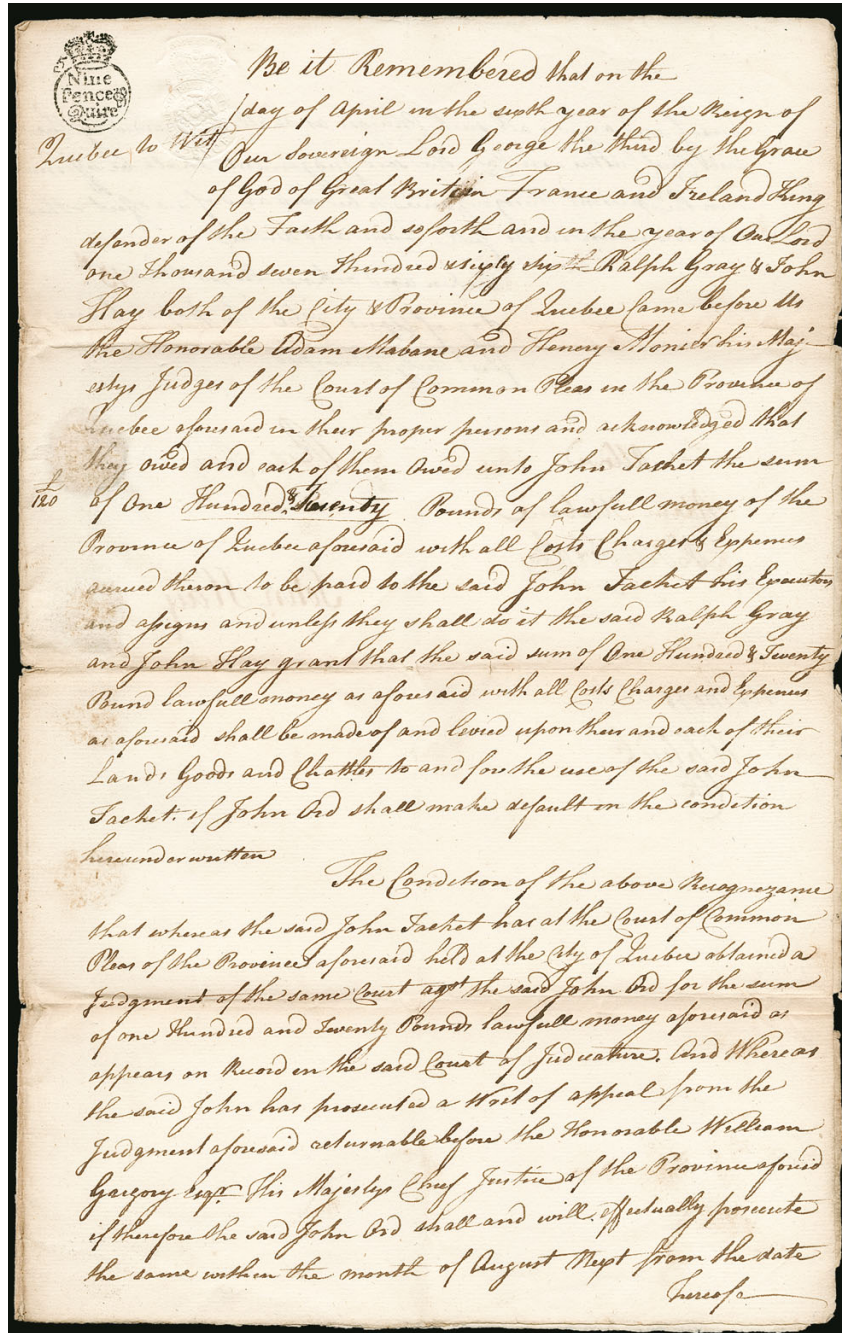 Nine
Pence ⅌
Quire
Be it Remembered that on the
day of April in the sixth year of the Reign of
Quebec to Wit
Our Sovereign Lord George the third by the Grace
of God of Great Britain France and Ireland King
defender of the Faith and soforth and in the year of Our Lord
one Thousand seven Hundred & sixty sixth Ralph Gray & John
Hay both of the City & Province of Quebec Came before Us
the Honorable Adam Mabane and Henery Monier his Maj-
estys Judges of the Court of Common Pleas in the Province of
Quebec aforesaid in their proper persons and acknowledged that
they owed and each of them Owed unto John Tachet the sum
£
120
of One Hundred & Twenty Pounds of lawfull money of the
Province of Quebec aforesaid with all Costs Charges & Expences
acrued theron to be paid to the said John Tachet his Executors
and assigns and unless they shall do it the said Ralph Gray
and John Hay grant that the said sum of One Hundred & Twenty
Pound lawfull money as aforesaid with all Costs Charges and Expences
as aforesaid shall be made of and levied upon their and each of their
Lands Goods and Chattles to and for the use of the said John
Tachet. if John Ord shall make default in the condition
hereunder written
The Condition of the above Recognezance
that whereas the said John Tachet has at the Court of Common
Pleas of the Province aforesaid held at the City of Quebec obtained a
Judgment of the same Court agst the said John Ord for the sum
of one Hundred and Twenty Pounds lawfull money aforesaid as
appears on Record in the said Court of Judicature. And Whereas
the said John has prosecuted a Writ of appeal from the
Judgment aforesaid returnable before the Honorable William
Gregory Esqr. His Majestys Chief Justice of the Province aforesaid
if therefore the said John Ord shall and will effectually prosecute
the same within the month of August Next from the date
hereof